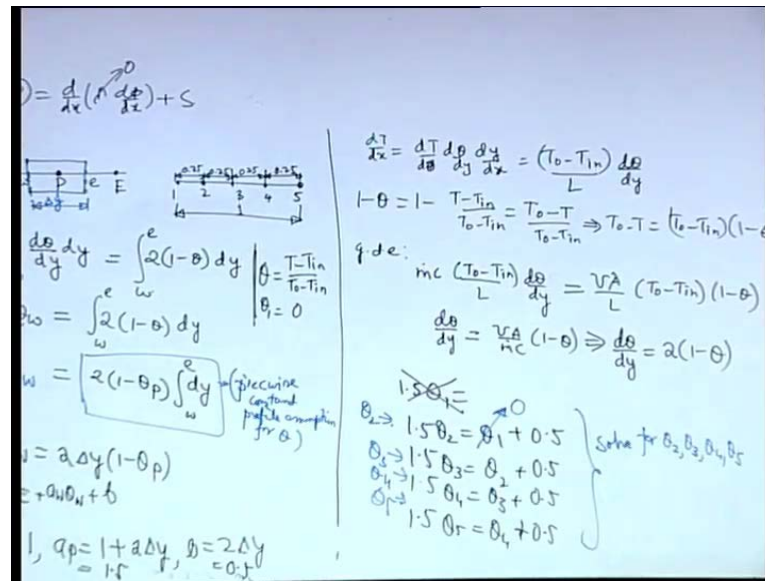 ) = d/dx (Γ dΦ/dx) + S
0
P e E
Δy
0.25 0.25 0.25 0.25
1 2 3 4 5
1
dθ/dy dy = ∫_w^e 2(1-θ) dy
θ = T-Tin/To-Tin
θ1 = 0
θw = ∫_w^e 2(1-θ) dy
w = 2(1-θP) ∫_w^e dy
(piecewise
constant
profile assumption
for θ)
= 2Δy(1-θP)
+ awθw + b
1, aP = 1+2Δy, b = 2Δy
= 1.5 = 0.5
dT/dx = dT/dθ dθ/dy dy/dx = (To-Tin)/L dθ/dy
1-θ = 1- T-Tin/To-Tin = To-T/To-Tin ⇒ To-T = (To-Tin)(1-θ
g.d.e:
ṁc (To-Tin)/L dθ/dy = UA/L (To-Tin)(1-θ)
dθ/dy = UA/ṁc (1-θ) ⇒ dθ/dy = 2(1-θ)
1.5θ1 =
0
θ2→ 1.5θ2 = θ1 + 0.5
θ3→ 1.5θ3 = θ2 + 0.5
θ4→ 1.5θ4 = θ3 + 0.5
θ5→ 1.5θ5 = θ4 + 0.5
solve for θ2, θ3, θ4, θ5